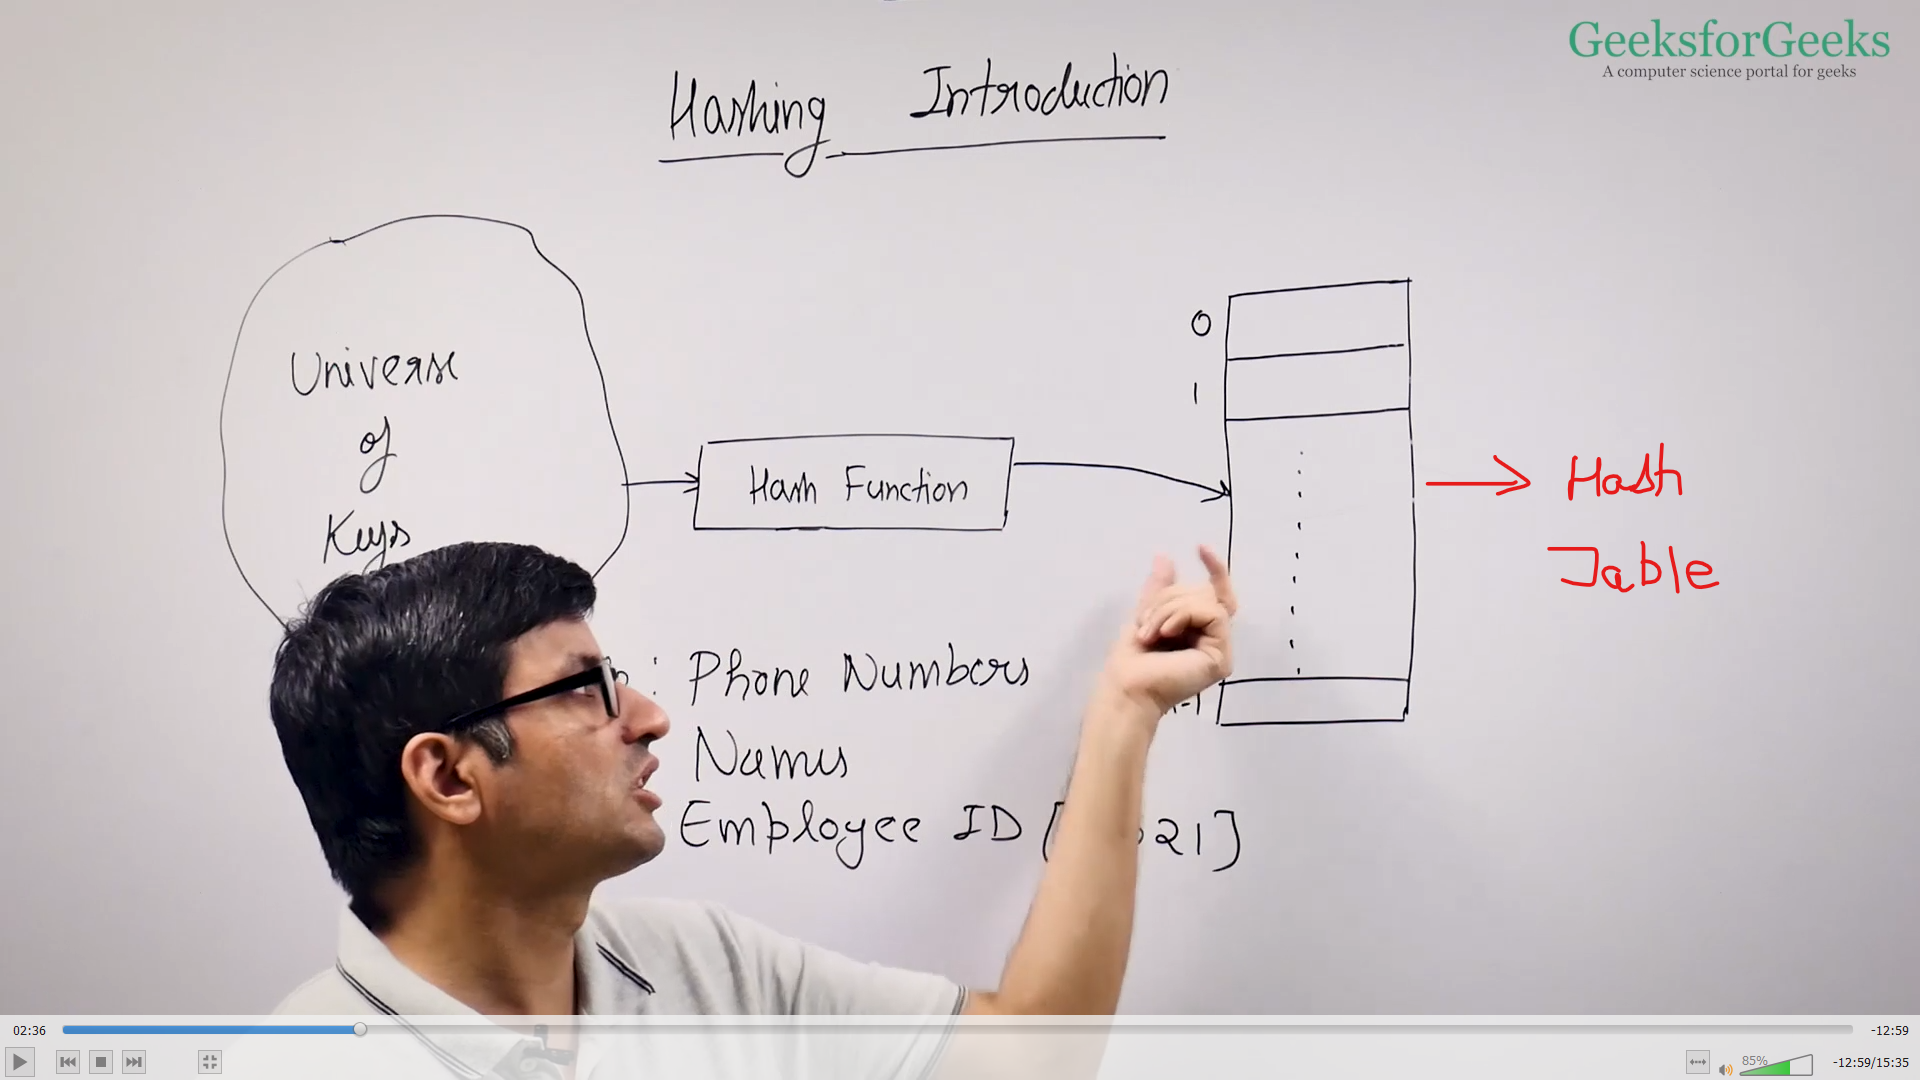 GeeksforGeeks
A computer science portal for geeks
Hashing Introduction
Universe
of
Keys
Hash Function
0
1
-1
Hash
Table
: Phone Numbers
Names
Employee ID [ 21]
02:36
-12:59
85%
-12:59/15:35